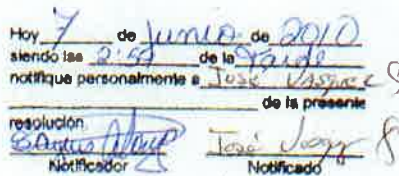 Hoy 7 de Junio de 2010
siendo las 2:59 de la Tarde
notifique personalmente a José Vásquez
de la presente
resolución
José
Notificador Notificado